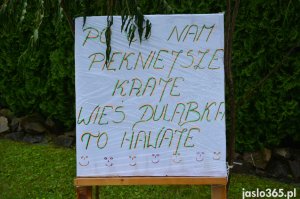 PO NAM
PIĘKNIEJSZE
KRAJE
WIEŚ DULĄBKA
TO HAWAJE
jaslo365.pl